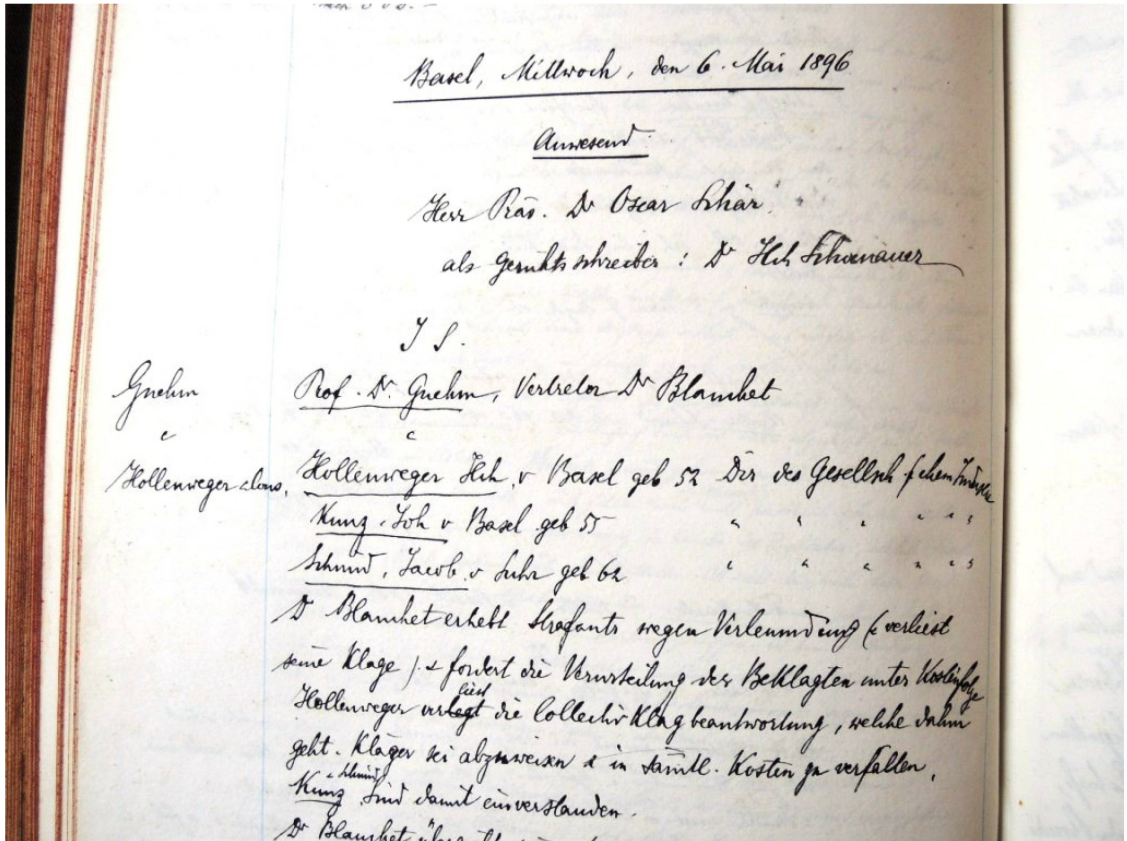 Basel, Mittwoch, den 6. Mai 1896
Anwesend
Herr Präs. Dr Oscar Schär
als Gerichtsschreiber: Dr Hch Schoenauer
I S.
Gnehm
Prof. Dr. Gnehm, Vertreter Dr Blanchet
c
c
Hollenweger
Hollenweger Hch, v Basel geb 52 Dir der Gesellsch f chem Industrie
Kunz, Joh v Basel geb 55 " " " " " "
Schmid, Jacob v Suhr geb 62 " " " " " "
Dr Blanchet erhebt Strafants wegen Verleumdung (: verliest
seine Klage :) & fordert die Verurteilung der Beklagten unter Kostenfolge
Hollenweger verlegt liest die Collectiv Klagbeantwortung, welche dahin
geht. Kläger sei abzuweisen & in sämtl. Kosten zu verfallen.
Kunz & Schmid sind damit einverstanden.
Dr Blanchet